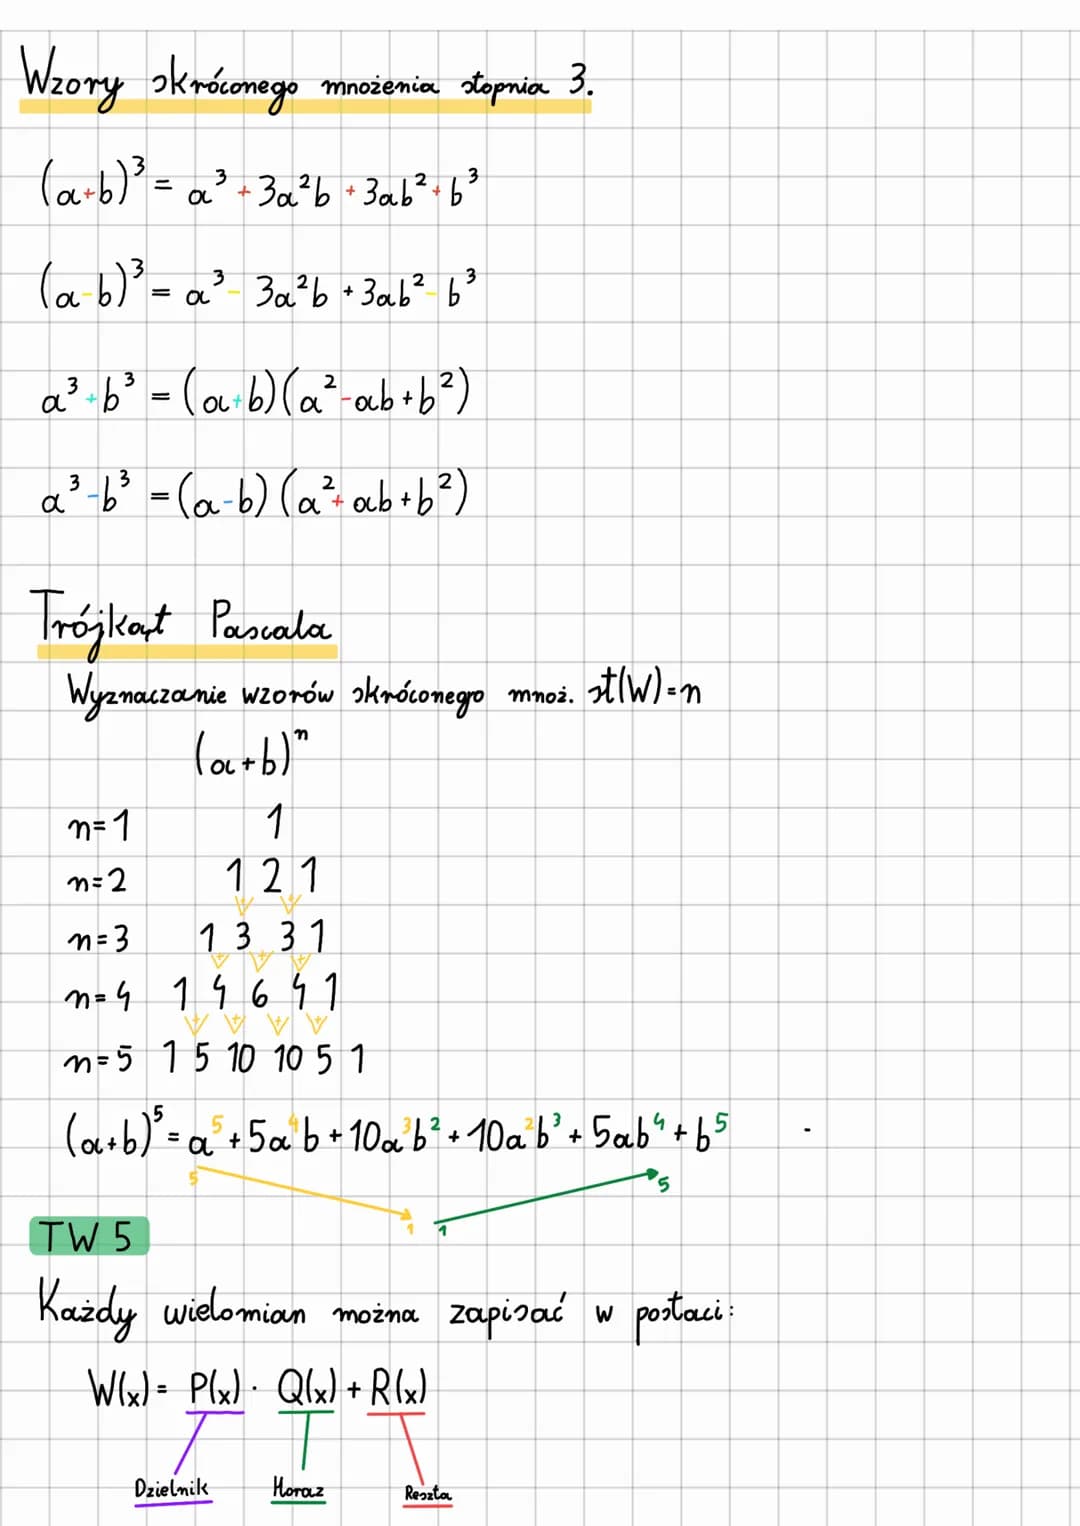 Wzory skróconego mnożenia stopnia 3.
(a+b)³ = a³ + 3a²b + 3ab² + b³
(a-b)³ = a³ - 3a²b + 3ab² - b³
a³+b³ = (a+b)(a²-ab+b²)
a³-b³ = (a-b)(a²+ab+b²)
Trójkąt Pascala
Wyznaczanie wzorów skróconego mnoż. st(W)=n
(a+b)ⁿ
n=1 1
n=2 1 2 1
n=3 1 3 3 1
n=4 1 4 6 4 1
n=5 1 5 10 10 5 1
(a+b)⁵ = a⁵ + 5a⁴b + 10a³b² + 10a²b³ + 5ab⁴ + b⁵
5 1 1 5
TW 5
Każdy wielomian można zapisać w postaci:
W(x) = P(x) · Q(x) + R(x)
Dzielnik Horaz Reszta